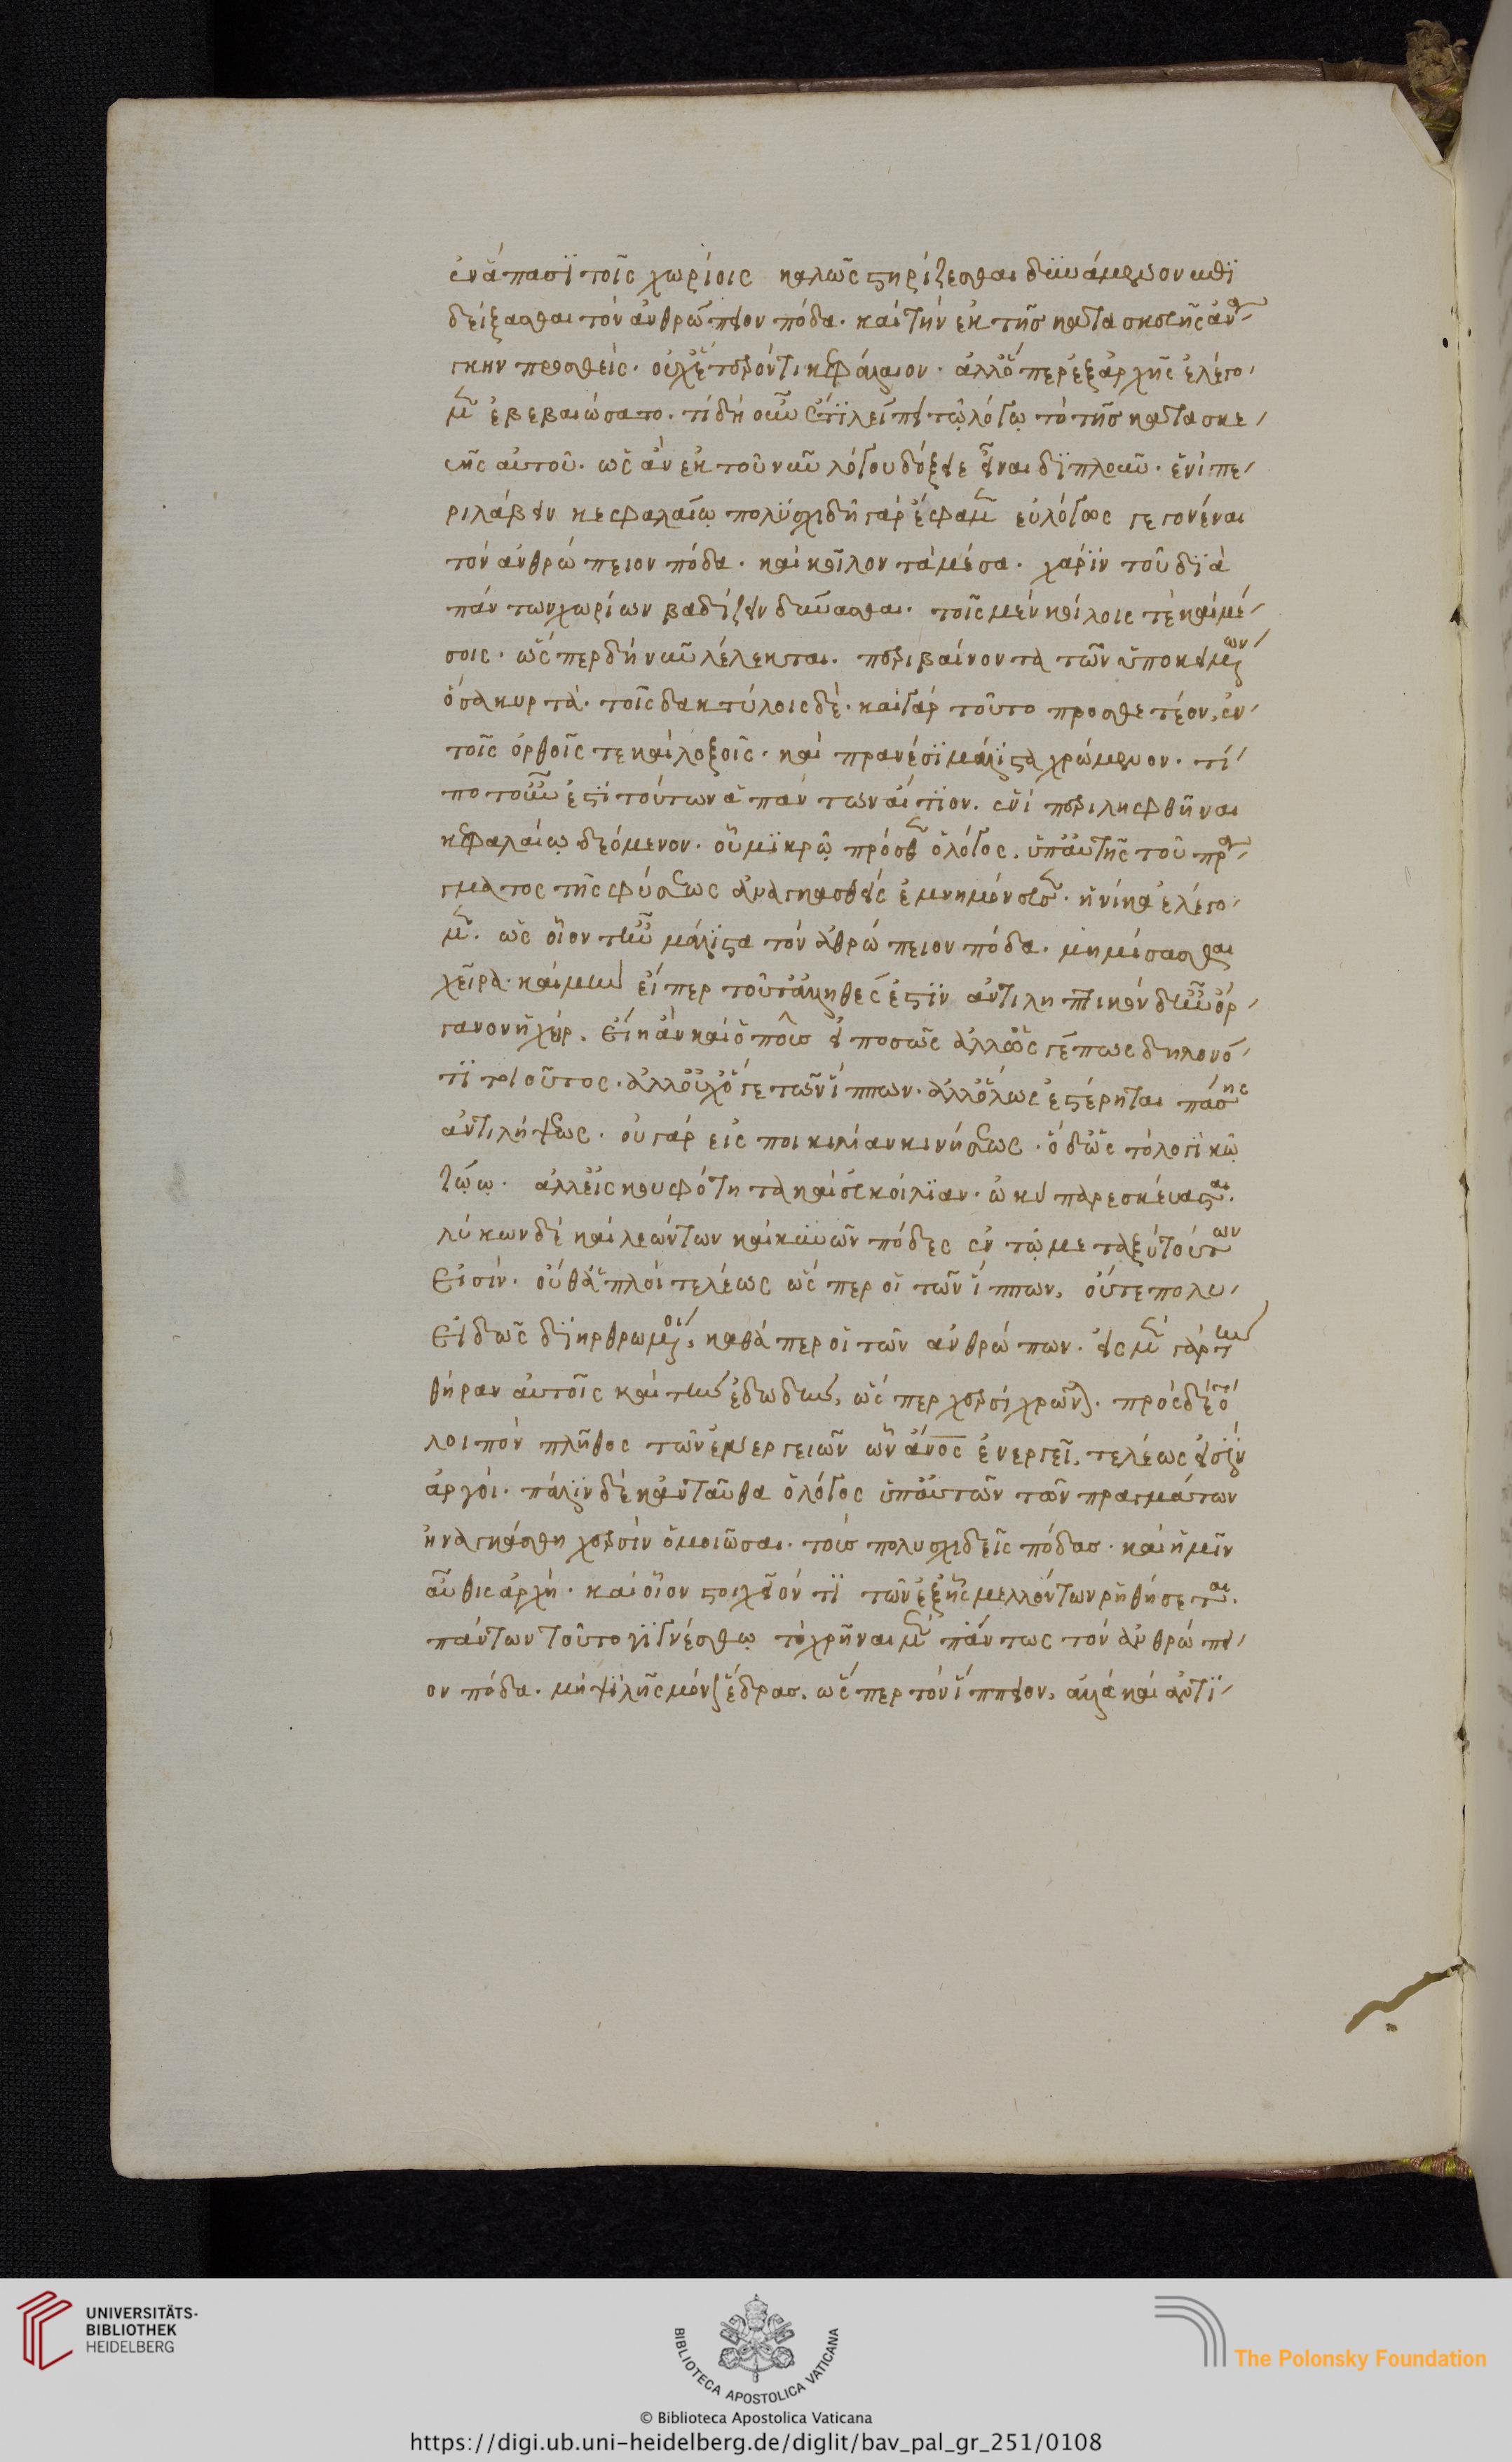 ἐν ἅπασι τοῖς χωρίοις καλῶς στηρίζεσθαι δυνάμενον ἐπι
δείξασθαι τὸν ἀνθρώπειον πόδα. καὶ τὴν ἐκ τῆς κατασκευῆς ἀνά
γκην προσθείς. οὐχ ἕτερόν τι κεφάλαιον. ἀλλ' ὅπερ ἐξ ἀρχῆς ἐλέγο
μεν ἐβεβαιώσατο. τί δὴ οὖν ἔτι λείπει τῷ λόγῳ τὸ τῆς κατασκε
υῆς αὐτοῦ. ὡς ἂν ἐκ τοῦ νῦν λόγου δόξειε εἶναι διπλοῦν. ἑνὶ πε
ριλαβεῖν κεφαλαίῳ πολυσχιδῆ γὰρ ἔφαμεν εὐλόγως γεγονέναι
τὸν ἀνθρώπειον πόδα. καὶ κοῖλον τὰ μέσα. χάριν τοῦ διὰ
πάντων χωρίων βαδίζειν δύνασθαι. τοῖς μὲν κοίλοις τὲ καὶ μέ
σοις. ὥσπερ δὴ νῦν λέλεκται. περιβαίνοντα τῶν ὑποκειμένων
ὅσα κυρτά. τοῖς δακτύλοις δέ. καὶ γὰρ τοῦτο προσθετέον, ἐν
τοῖς ὀρθοῖς τε καὶ λοξοῖς. καὶ πρανέσι μάλιστα χρώμενον. τί
ποτ' οὖν ἐστὶ τούτων ἁπάντων αἴτιον. ἑνὶ περιληφθῆναι
κεφαλαίῳ δεόμενον. οὗ μικρῷ πρόσθεν ὁ λόγος, ὑπ' αὐτῆς τοῦ πρά
γματος τῆς φύσεως ἀναγκασθεὶς ἐμνημόνευσεν. ἡνίκα ἐλέγο
μεν. ὡς οἷον τ' οὖν μάλιστα τὸν ἀνθρώπειον πόδα. μιμήσασθαι
χεῖρα. καὶ μὴν εἴπερ τοῦτ' ἀληθές ἐστιν ἀντιληπτικὸν δ' οὖν ὄρ
γανον ἡ χείρ. εἴη ἂν καὶ ὁ ποὺς εἰ πο σῶς ἀλλ' ὡς γέ πως δηλονό
τι τοιοῦτος. ἀλλ' οὐχ ὅ γε τῶν ἵππων. ἀλλ' ὅλως ἐστέρηται πάσης
ἀντιλήψεως. οὐ γὰρ εἰς ποικιλίαν κινήσεως. ὅδ' ὡς τὸ λογικῷ
ζώῳ. ἀλλ' εἰς κουφότητα καὶ εἰς κοιλίαν. ὠκὺ παρεσκεύασται.
λύκων δὲ καὶ λεόντων καὶ κυνῶν πόδες ἐν τῷ μεταξὺ τούτων
εἰσίν. οὔθ' ἁπλοῖ τελέως ὥσπερ οἱ τῶν ἵππων, οὔτε πολυ
ειδῶς διηρθρωμένοι, καθάπερ οἱ τῶν ἀνθρώπων. εἰς μὲν γὰρ τὴν
θήραν αὐτοῖς καὶ τὴν ἐδωδὴν, ὥσπερ χερσὶ χρῶνται. πρὸς δὲ τὸ
λοιπὸν πλῆθος τῶν ἐνεργειῶν ὧν ἄνος ἐνεργεῖ, τελέως εἰσὶν
ἀργοί. πάλιν δὲ κἀνταῦθα ὁ λόγος ὑπ' αὐτῶν τῶν πραγμάτων
ἠναγκάσθη χερσὶν ὁμοιῶσαι. τοὺς πολυσχιδεῖς πόδας. καὶ ἡμῖν
αὖθις ἀρχή. καὶ οἷον στοιχεῖόν τι τῶν ἑξῆς μελλόντων ῥηθήσεται.
πάντων τοῦτο γιγνέσθω τὸ χρῆναι μὲν πάντως τὸν ἀνθρώπει
ον πόδα. μὴ ψιλῆς μόνης ἕδρας, ὥσπερ τὸν ἵππειον, ἀλλὰ καὶ ἀντι
UNIVERSITÄTS-
BIBLIOTHEK
HEIDELBERG
BIBLIOTECA APOSTOLICA VATICANA
The Polonsky Foundation
© Biblioteca Apostolica Vaticana
https://digi.ub.uni-heidelberg.de/diglit/bav_pal_gr_251/0108